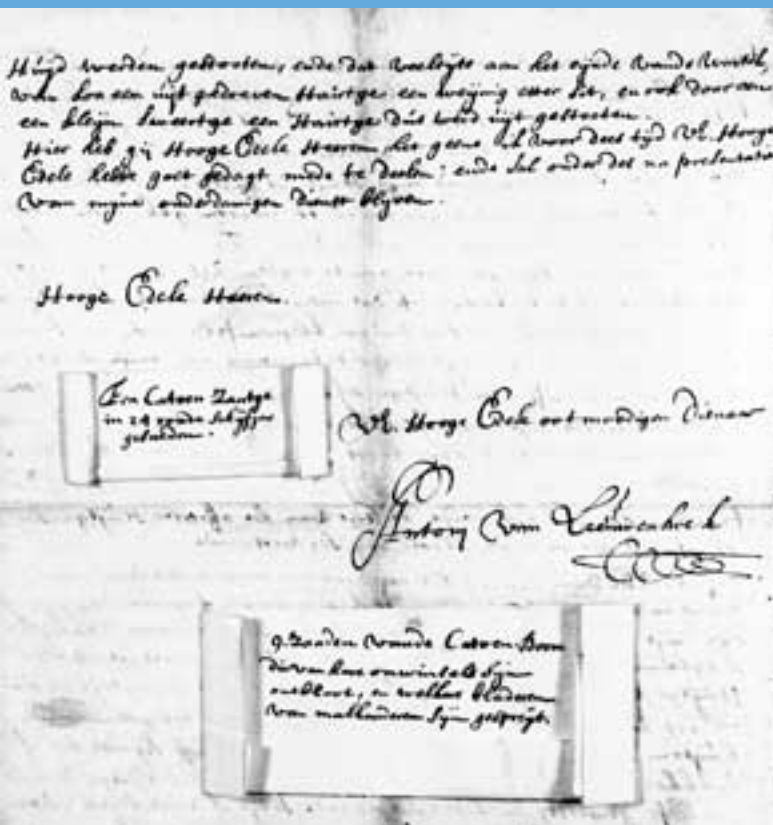 Huijd werden gestooten, ende dat veeltijts aan het eijnde vande wortel,
van soo een uijt gedreven Hairtge, een weijnig etter sit, en ook door
een kleijn een Hairtge dus werd uijt gestooten.
Hier heb gij Hooge Edele Heeren het geene ik voor dees tijd Ul. Hooge
Edele hebbe goet gedagt mede te deelen; ende sal onder des na presentatie
van mijne onderdanigen dienst blijven.
Hooge Edele Heeren.
Een Catoen Zaatge
in 24 ronde schijfjens
gesneden.
Ul. Hooge Edele ootmoedigen Dienaar
Antonj van Leeuwenhoek
9. Zaaden vande Catoen Boom
die van hare sijn
ontbloot, en welkers bladeren
van malkanderen sijn gespreijt.